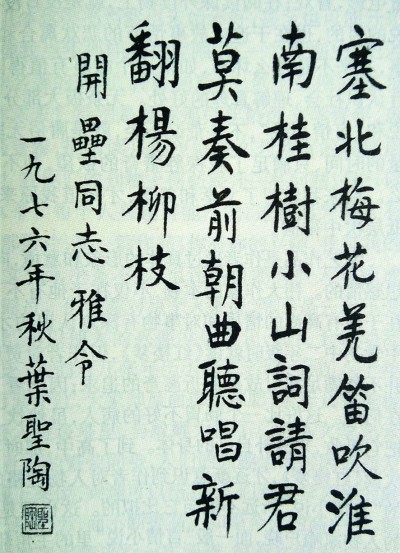 塞北梅花羌笛吹淮
南桂樹小山詞請君
莫奏前朝曲聽唱新
翻楊柳枝
開壘同志雅令
一九七六年秋葉聖陶
聖陶